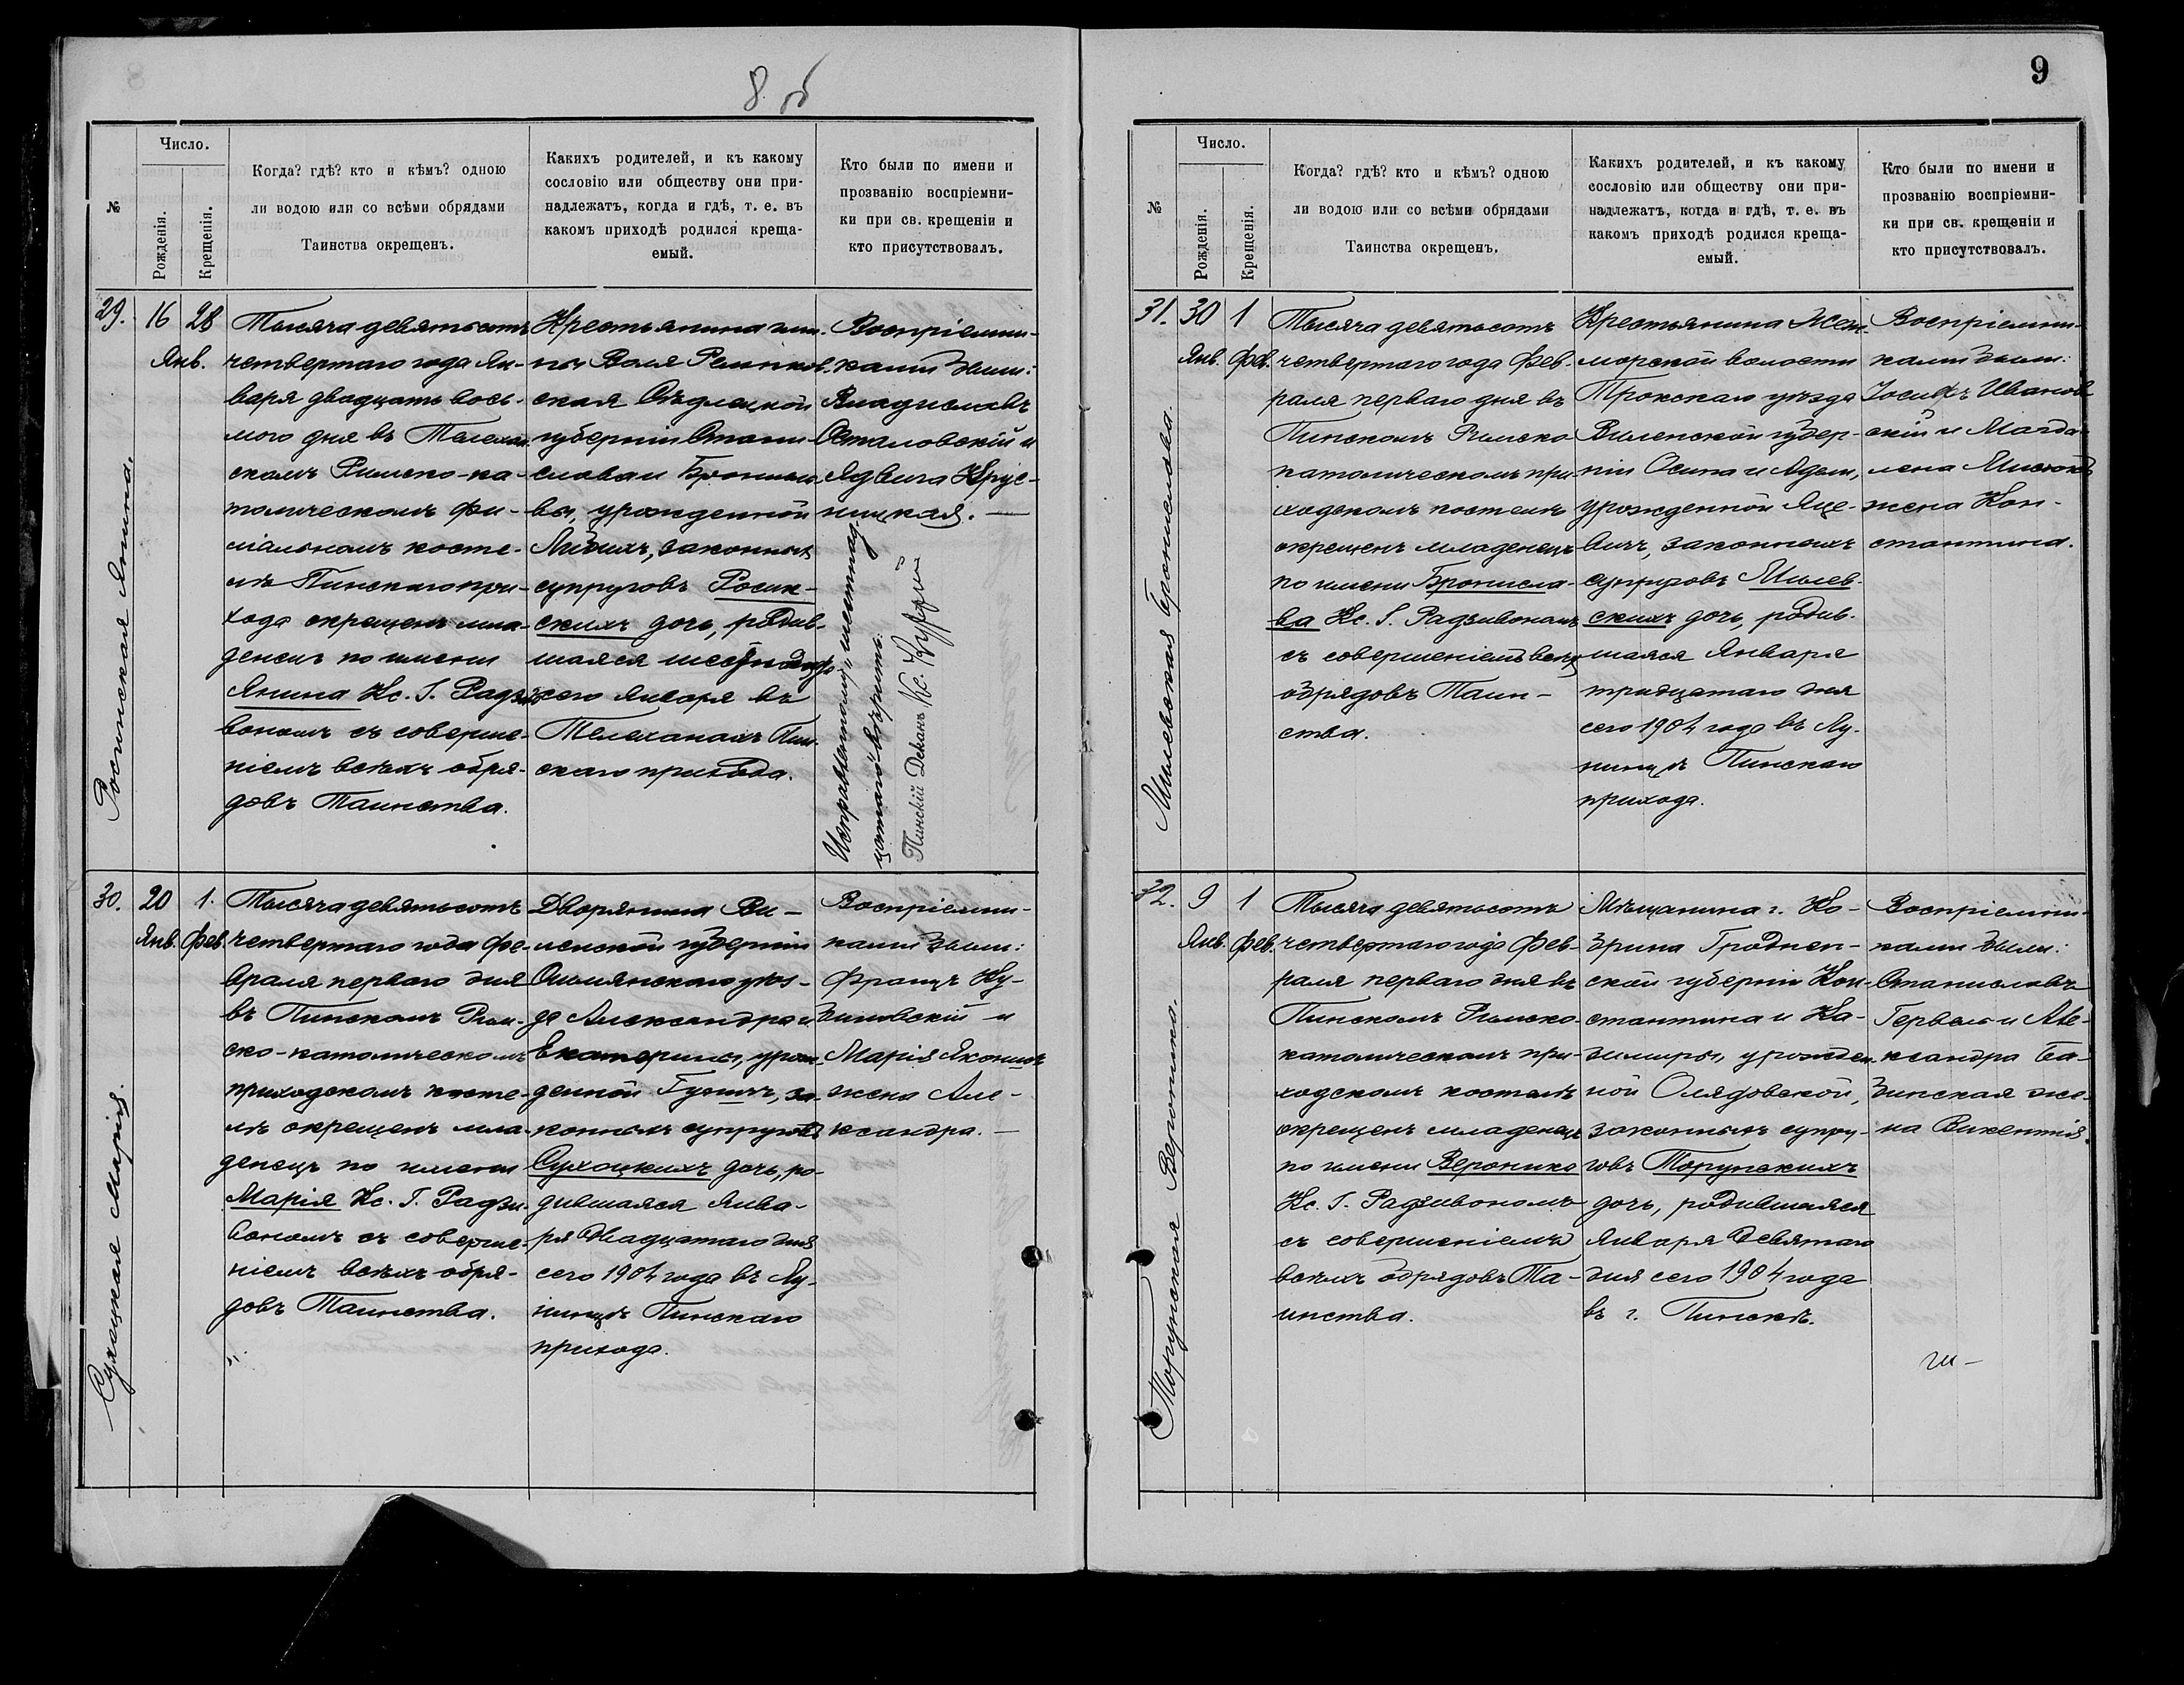 8 об
№
Число.
Рожденія.
Крещенія.
Когда? гдѣ? кто и кѣмъ? одною
ли водою или со всѣми обрядами
Таинства окрещенъ.
Какихъ родителей, и къ какому
сословію или обществу они при-
надлежатъ, когда и гдѣ, т. е. въ
какомъ приходѣ родился креща-
емый.
Кто были по имени и
прозванію воспріемни-
ки при св. крещеніи и
кто присутствовалъ.
Росинская Янина.
29.
16
Янв.
28
Тысяча девятьсотъ
четвертаго года Ян-
варя двадцать вось-
мого дня въ Телехан
скомъ Римско-ка-
толическомъ фи-
ліальномъ косте-
лѣ Пинскаго при-
хода окрещенъ мла-
денецъ по имени
Янина Кс. I. Радзи
вономъ съ соверше-
ніемъ всѣхъ обря-
довъ Таинства.
Крестьянина гми-
ны Воля
ская Сѣдлецкой
губерніи Стани-
слава и Бронисла
вы, урожденной
законныхъ
супруговъ Росин-
скихъ дочь, родив-
шаяся
сего Января въ
Телеханахъ Пин-
скаго прихода.
Воспріемни-
ками были:
Владиславъ
Осталовскій и
Ядвига Крус-
ницкая. —
Исправленному „шестнад-
цатаго“ вѣрить.
Пинскій Деканъ Кс.
Сухоцкая Марія.
30.
20
Янв.
1.
Фев.
Тысяча девятьсотъ
четвертаго года Фе-
враля перваго дня
въ Пинскомъ Рим-
ско-католическомъ
приходскомъ косте-
лѣ окрещенъ мла-
денецъ по имени
Марія Кс. I. Радзи-
вономъ съ соверше-
ніемъ всѣхъ обря-
довъ Таинства.
Дворянина Ви-
ленской губерніи
Ошмянскаго уѣз-
да Александра и
Екатерины, урож-
денной за-
конныхъ супруговъ
Сухоцкихъ дочь, ро-
дившаяся Янва-
ря двадцатаго дня
сего 1904 года въ Лу-
нинцѣ Пинскаго
прихода.
Воспріемни-
ками были:
Францъ Ку-
и
Марія
жена Але-
ксандра. —
9
№
Число.
Рожденія.
Крещенія.
Когда? гдѣ? кто и кѣмъ? одною
ли водою или со всѣми обрядами
Таинства окрещенъ.
Какихъ родителей, и къ какому
сословію или обществу они при-
надлежатъ, когда и гдѣ, т. е. въ
какомъ приходѣ родился креща-
емый.
Кто были по имени и
прозванію воспріемни-
ки при св. крещеніи и
кто присутствовалъ.
Милевская Бронислава.
31.
30
Янв.
1
Фев.
Тысяча девятьсотъ
четвертаго года Фев-
раля перваго дня въ
Пинскомъ Римско
католическомъ при-
ходскомъ костелѣ
окрещенъ младенецъ
по имени Бронисла-
ва Кс. I. Радзивономъ
съ совершеніемъ всѣхъ
обрядовъ Таин-
ства.
Крестьянина Жеж-
морской волости
Трокскаго уѣзда
Виленской губер-
ніи Осипа и Адели,
урожденной Яце-
вичъ, законныхъ
супруговъ Милев-
скихъ дочь, родив-
шаяся Января
тридцатаго дня
сего 1904 года въ Лу-
нинцѣ Пинскаго
прихода.
Воспріемни-
ками были:
Іосифъ Иванов
скій и Магда-
лена
жена Кон-
стантина.
Торунская Вероника.
32.
9
Янв.
1
Фев.
Тысяча девятьсотъ
четвертаго года Фев-
раля перваго дня въ
Пинскомъ Римско-
католическомъ при-
ходскомъ костелѣ
окрещенъ младенецъ
по имени Вероника
Кс. I. Радзивономъ
съ совершеніемъ
всѣхъ обрядовъ Та-
инства.
Мѣщанина г. Ко-
брина Гроднен-
ской губерніи Кон-
стантина и Ка-
зимиры, урожден-
ной Олядовской,
законныхъ супру-
говъ Торунскихъ
дочь, родившаяся
Января девятаго
дня сего 1904 года
въ г. Пинскѣ.
Воспріемни-
ками были:
Станиславъ
Гервель и Але-
ксандра Ба-
бинская же-
на Викентія.